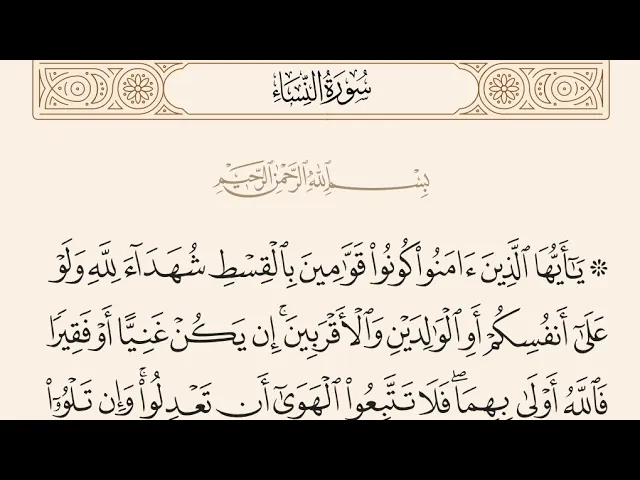 سُورَةُ النِّسَاءِ
بِسْمِ ٱللَّهِ ٱلرَّحْمَٰنِ ٱلرَّحِيمِ
۞ يَٰٓأَيُّهَا ٱلَّذِينَ ءَامَنُوا۟ كُونُوا۟ قَوَّٰمِينَ بِٱلْقِسْطِ شُهَدَآءَ لِلَّهِ وَلَوْ
عَلَىٰٓ أَنفُسِكُمْ أَوِ ٱلْوَٰلِدَيْنِ وَٱلْأَقْرَبِينَ ۚ إِن يَكُنْ غَنِيًّا أَوْ فَقِيرًا
فَٱللَّهُ أَوْلَىٰ بِهِمَا ۖ فَلَا تَتَّبِعُوا۟ ٱلْهَوَىٰٓ أَن تَعْدِلُوا۟ ۚ وَإِن تَلْوُۥٓا۟